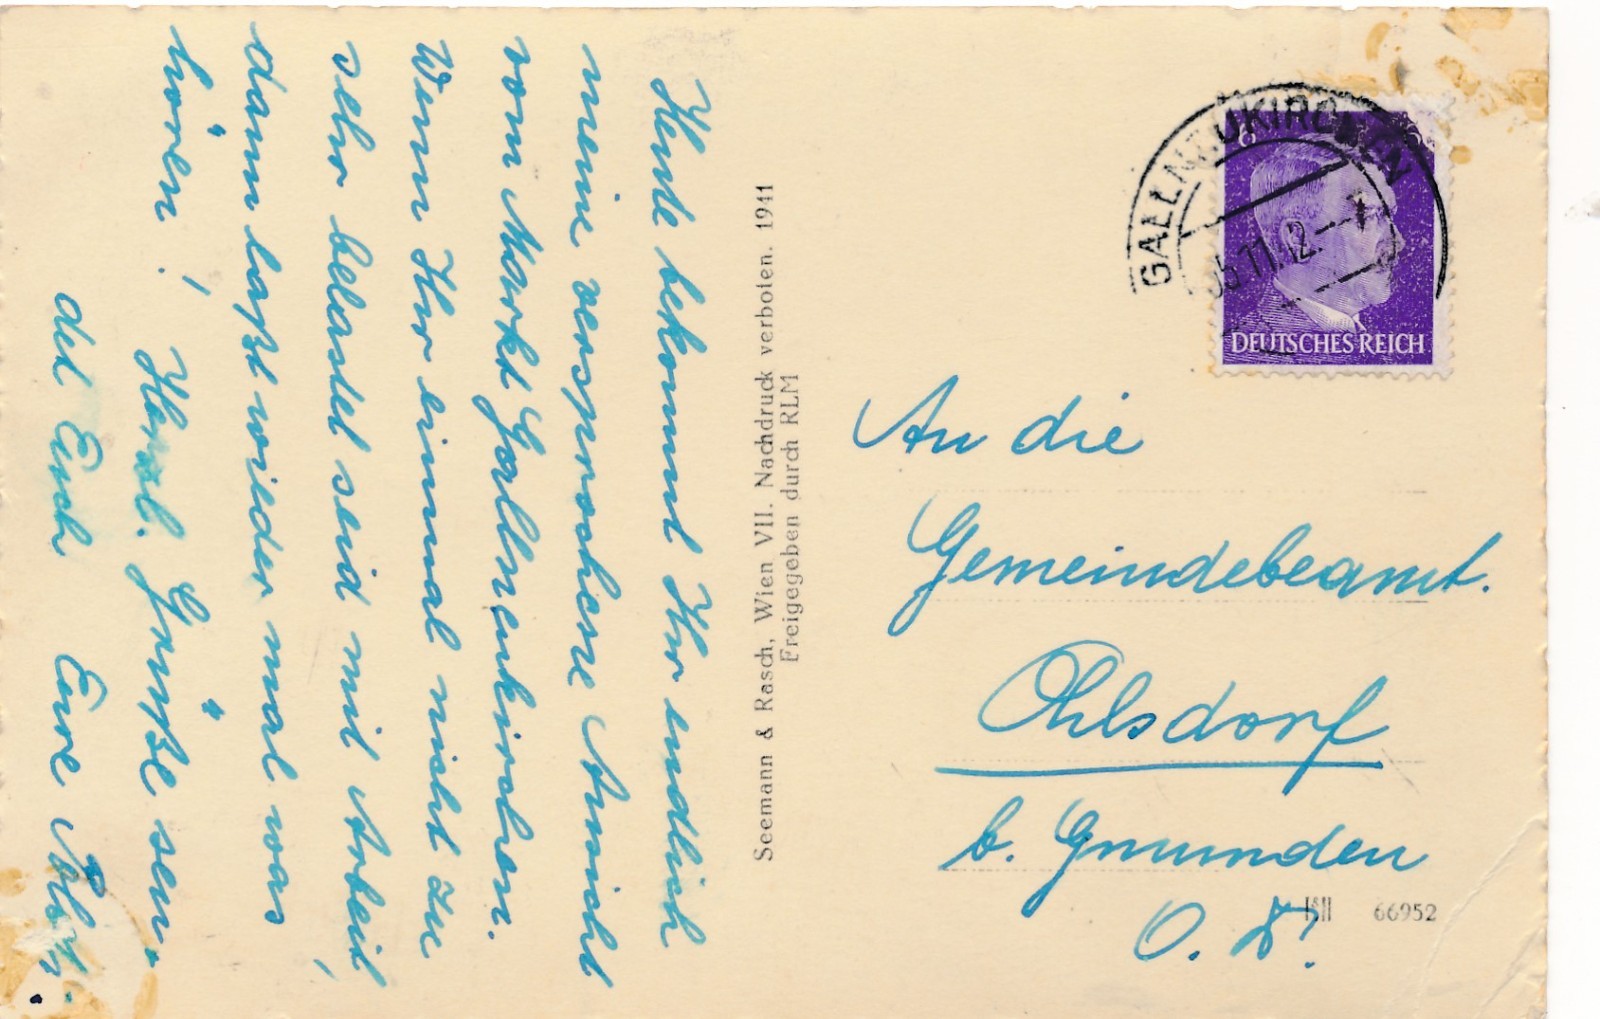 Heute bekommt Ihr endlich
meine versprochene Ansicht
vom Markt Gallneukirchen.
Wenn Ihr einmal nicht zu
sehr belastet seid mit Arbeit,
dann laßt wieder mal was
hören! Herzl. Grüße sen-
det Euch Eure
Seemann & Rasch, Wien VII. Nachdruck verboten. 1941
Freigegeben durch RLM
GALLNEUKIRCHEN
11.42.
DEUTSCHES REICH
An die
Gemeindebeamt.
Ohlsdorf
b. Gmunden
O. D.
66952